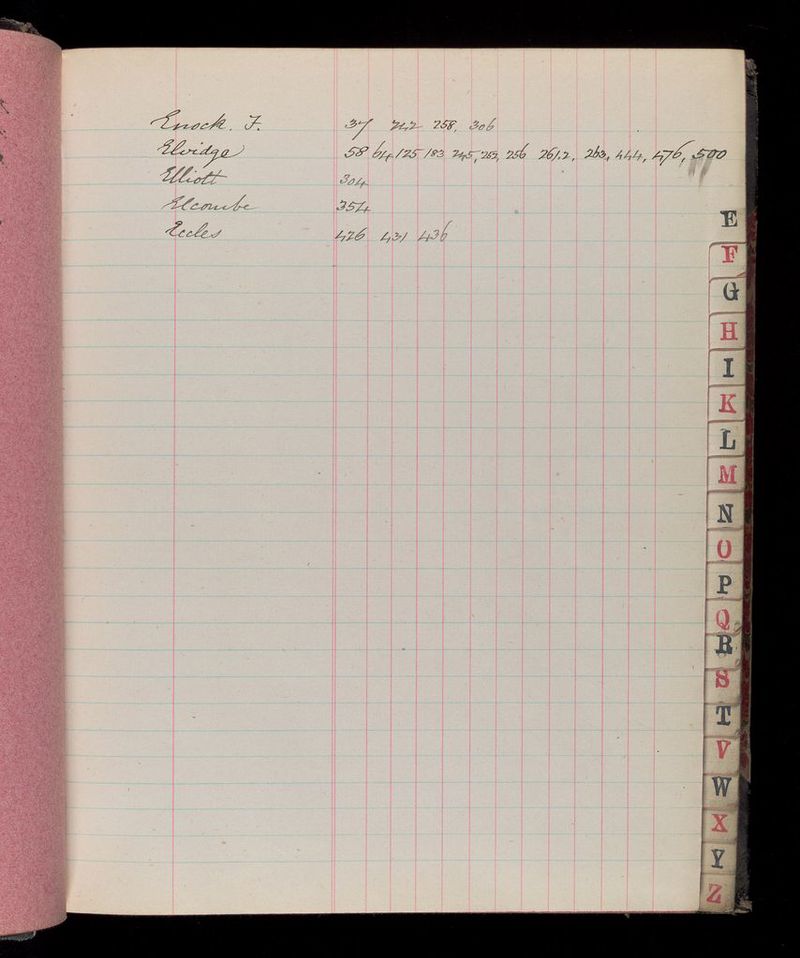 Enock. F. 37 242 258, 306
Elvidge 58 64, 125 183 245, 252, 256 261.2, 263, 444, 476, 500
Elliott 304
Elcombe 354
Eccles 426 431 436
E
F
G
H
I
K
L
M
N
O
P
Q
R
S
T
V
W
X
Y
Z